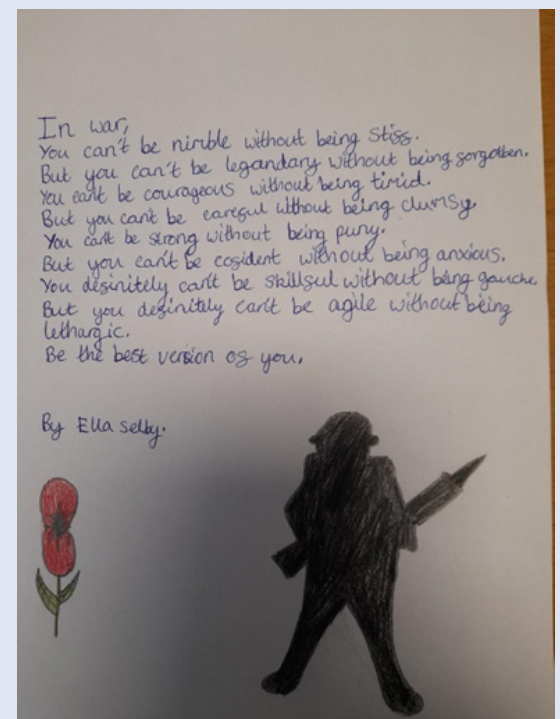 In war,
You can't be nimble without being stiff.
But you can't be legandary without being forgotten.
You can't be courageous without being timid.
But you can't be careful without being clumsy.
You can't be strong without being puny.
But you can't be cofident without being anxious.
You definitely can't be skillful without being gauche.
But you definitely can't be agile without being
lethargic.
Be the best version of you.
By Ella selby.